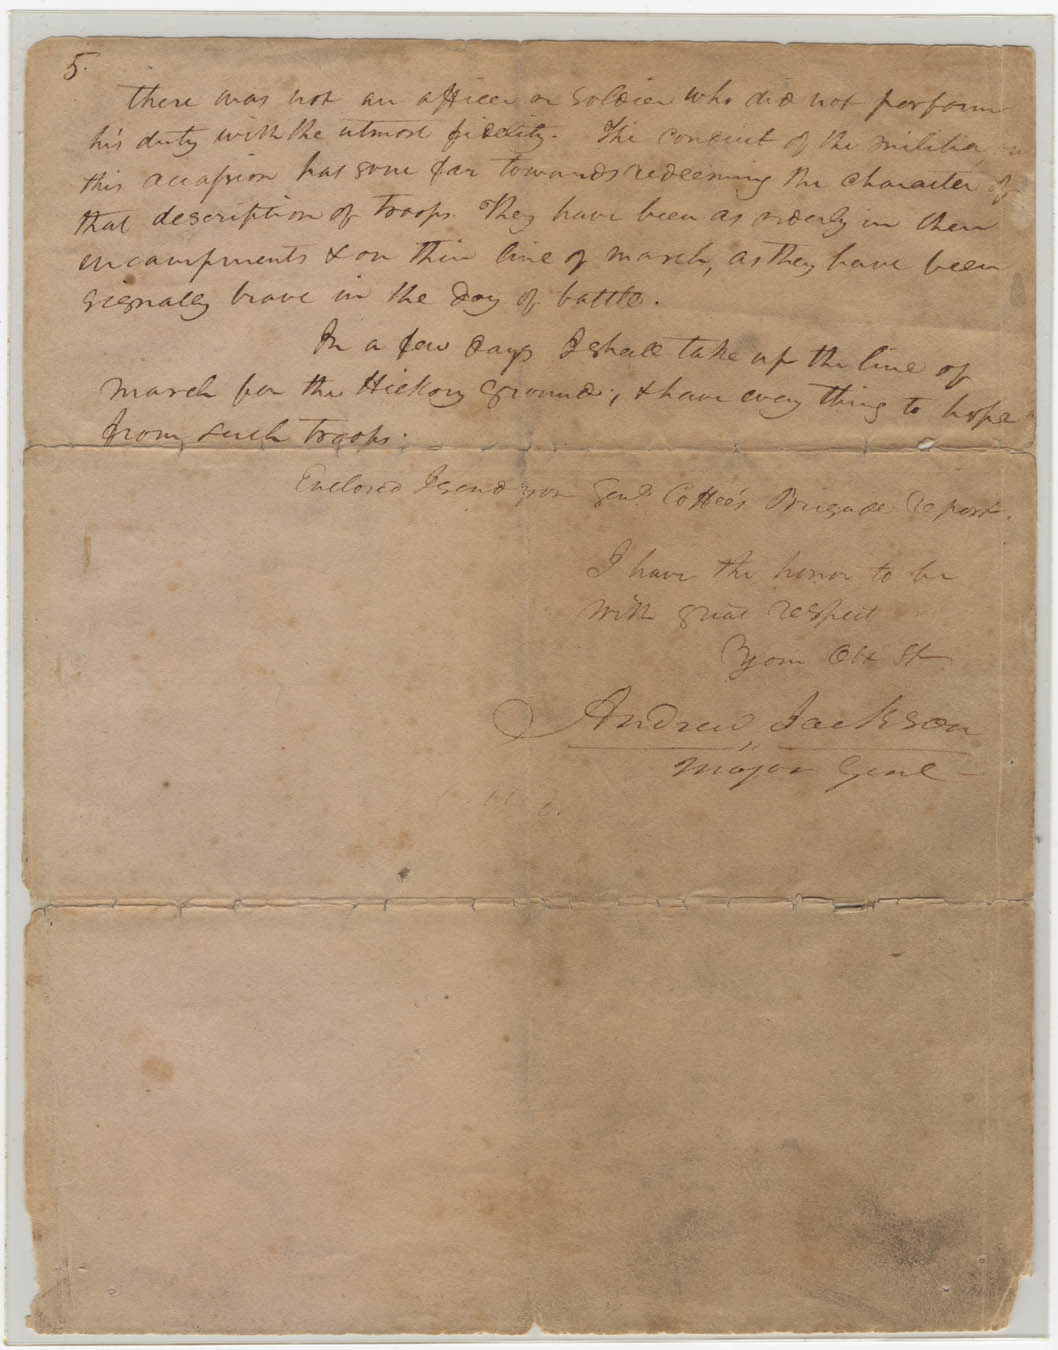 5.
there was not an officer or soldier who did not perform
his duty with the utmost fidelity. The conduct of the militia, on
this occasion has gone far towards redeeming the character of
that description of troops. They have been as orderly in their
encampments & on their line of march, as they have been
signally brave in the day of battle.
In a few days I shall take up the line of
march for the Hickory ground; & have every thing to hope
from such troops.
Enclosed I send you Genl. Coffee's Brigade report.
I have the honor to be
with great respect
Your Obt St
Andrew Jackson
Major Genl